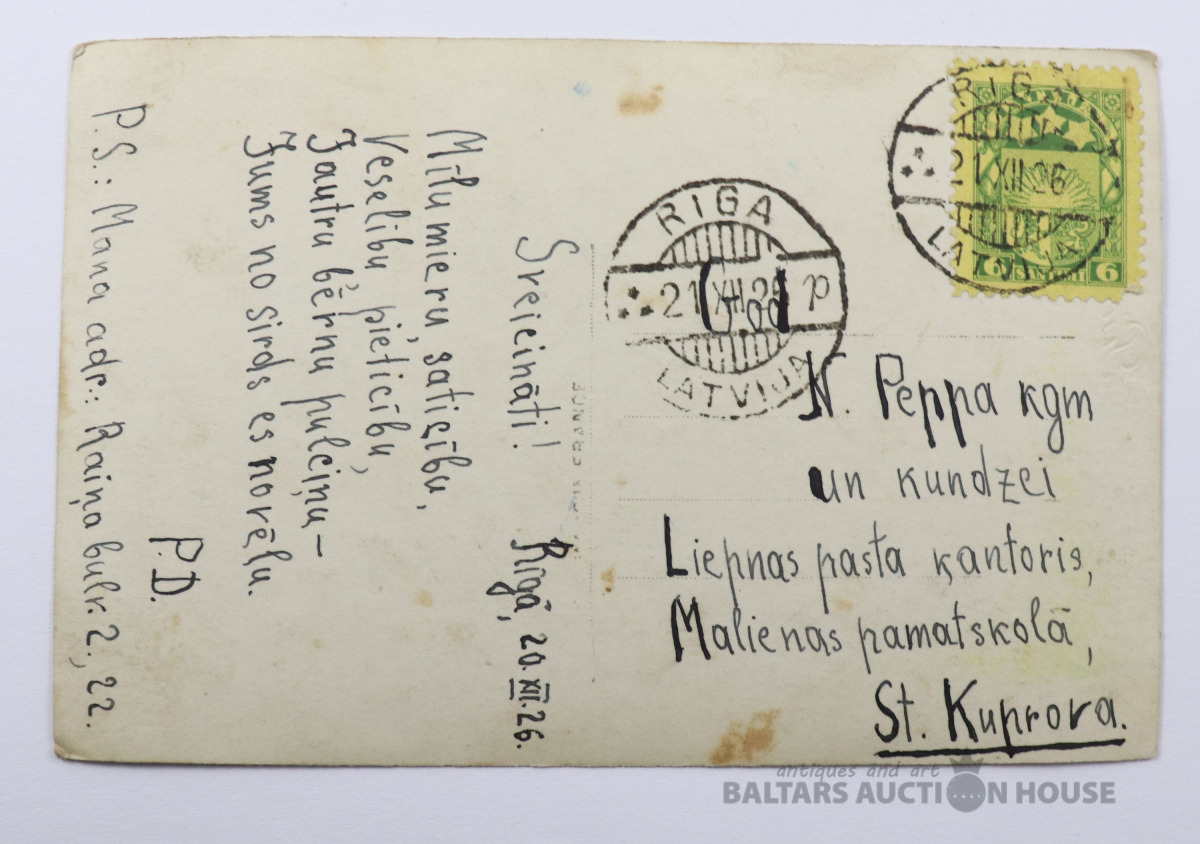 Rīgā, 20.XII.26.
Sveicināti!
Mīlu mieru saticību,
Veselību, pieticību,
Jautru bērnu pulciņu—
Jums no sirds es novēlu.
P.D.
P.S.: Mana adr.: Raiņa bulv. 2., 22.
God
N. Peppa kgm
un kundzei
Liepnas pasta kantoris,
Malienas pamatskolā,
St. Kuprova.
RIGA
21 XII 26
LATVIJA
RIGA
21 XII 26 p
LATVIJA
LATVIJA
6 6
FRANCE
antiques and art
BALTARS AUCTION HOUSE